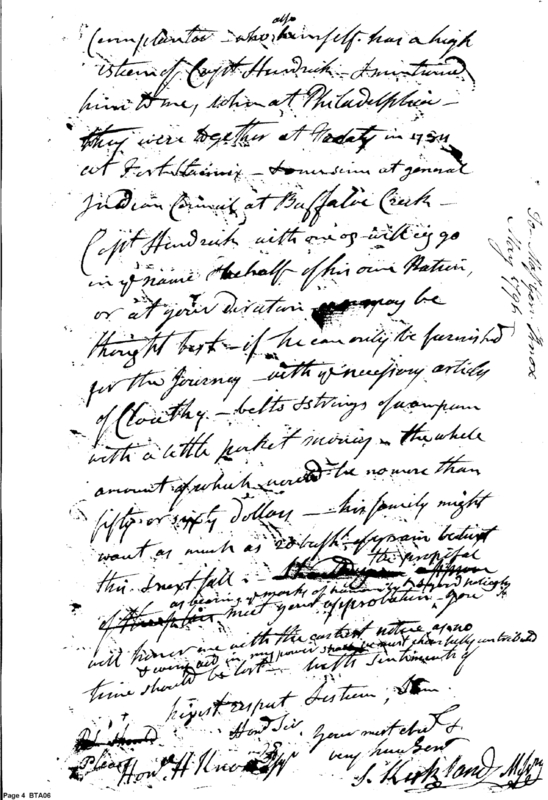 also
Cornplanter - who himself has a high
esteem of Capt Hendrick - & mentioned
him to me, when at Philadelphia -
they were together at Treaty in 1784
at Fort Stanwix - & at general
Indian Council at Buffaloe Creek -
Capt Hendrick with one or will go
in ye name & behalf of his own Nation,
or at your direction may be
thought best - if he can only be furnished
for the Journey - with ye necessary articles
of Cloathg - belts & strings of wampum
with a little pocket money - the whole
amount of which would be no more than
fifty or sixty dollars - his family might
want as much as 20 bushl of grain betwixt
this & next fall :- the proposal
as bearing ye marks of humanity & good policy
of meet your approbation - you
will honor me with the earliest notice as no
& every aid in my power shall be most chearfully contributed
time should be lost - with sentiments of
highest respect & esteem, I am
Hond Sir your most obedt &
very hum Servt
Honr H Knox Esqr
S. Kirkland Missy
To Major Knox
May 1791
Page 4 BTA06